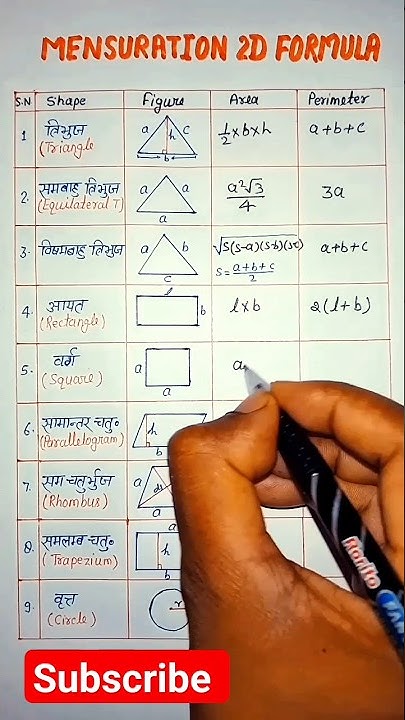 MENSURATION 2D FORMULA
S.N Shape Figure Area Perimeter
1 त्रिभुज (Triangle a h c b ½×b×h a+b+c
2. समबाहु त्रिभुज (Equilateral T) a a a a²√3/4 3a
3. विषमबाहु त्रिभुज a b c √S(S-a)(S-b)(S-c) S=a+b+c/2 a+b+c
4. आयत (Rectangle) l b l×b 2(l+b)
5. वर्ग (Square) a a a
6. सामान्तर चतु॰ (Parallelogram) h b
7. सम चतुर्भुज (Rhombus) a
8. समलम्ब चतु॰ (Trapezium) a h b
9. वृत्त (Circle) r
Rorito
Subscribe